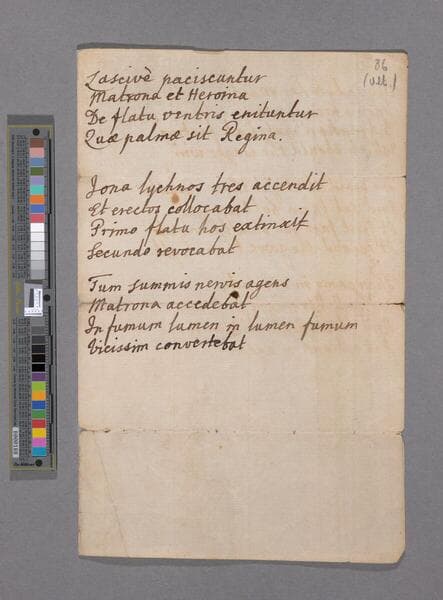 86
(ult.)
Lascivè paciscuntur
Matrona et Heroina
De flatu ventris enituntur
Quæ palmæ sit Regina.
Jona lychnos tres accendit
Et erectos collocabat
Primo flatu hos extinxit
Secundo revocabat
Tum summis nervis agens
Matrona accedebat
In fumum lumen in lumen fumum
Vicissim convertebat